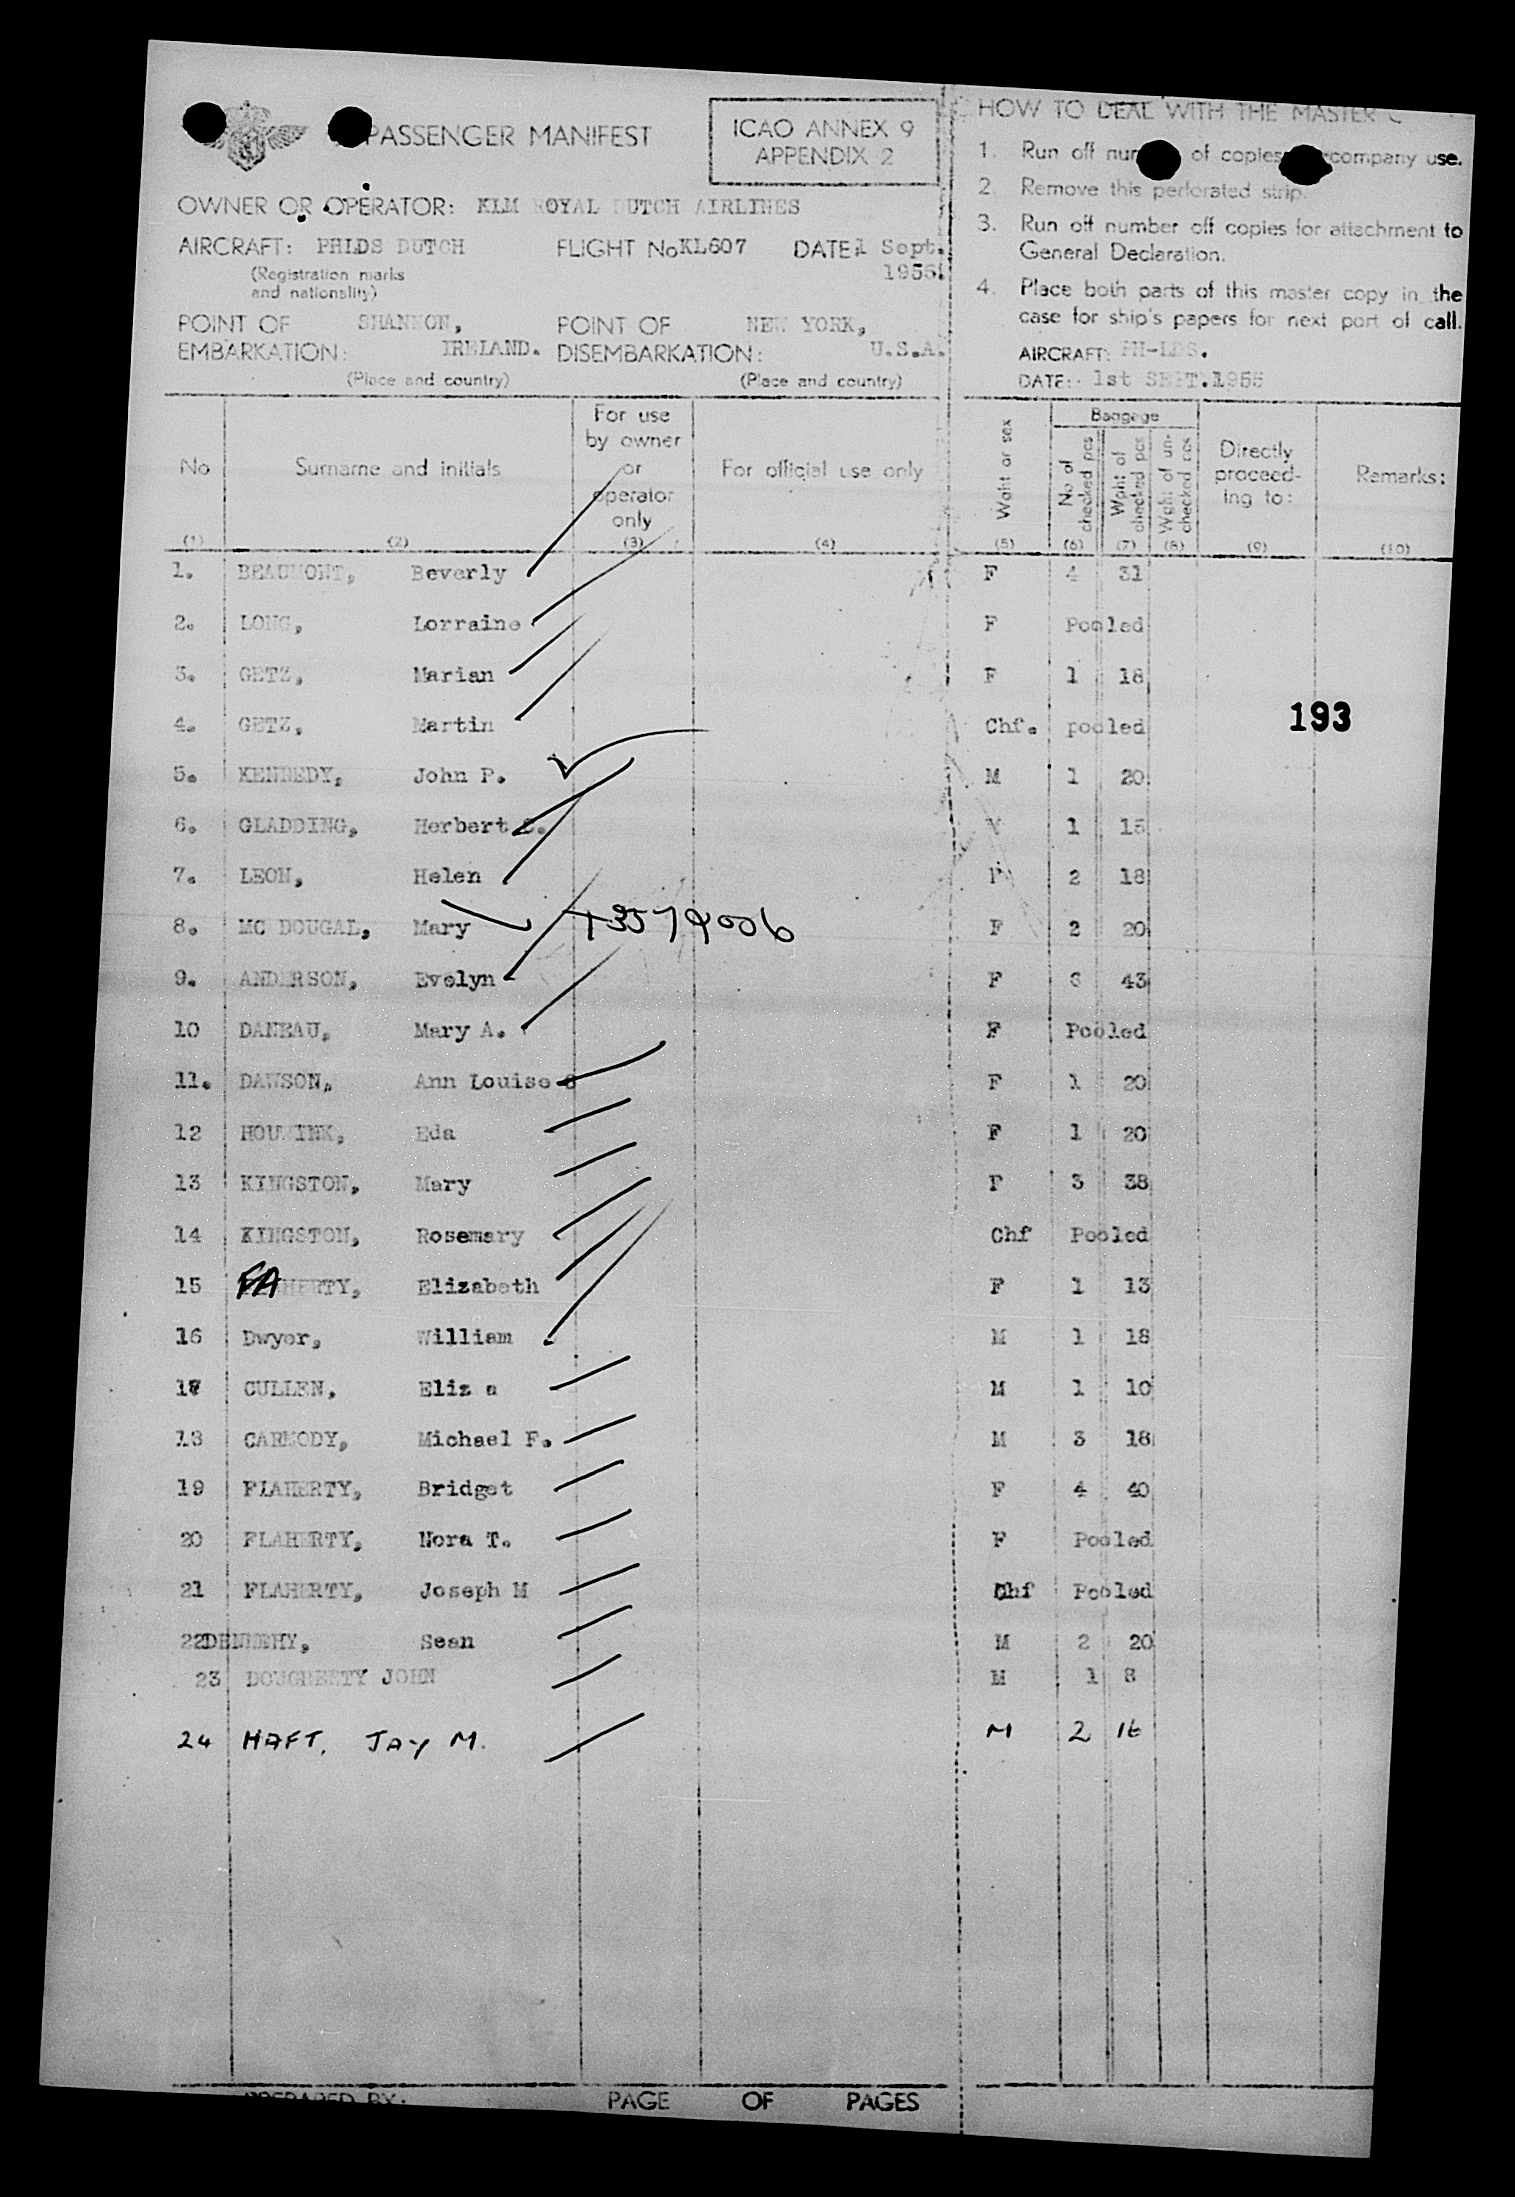 PASSENGER MANIFEST
ICAO ANNEX 9
APPENDIX 2
OWNER OR OPERATOR: KLM ROYAL DUTCH AIRLINES
AIRCRAFT: PHLDS DUTCH FLIGHT No KL607 DATE: 1 Sept.
(Registration marks 1955.
and nationality)
POINT OF SHANNON, POINT OF NEW YORK,
EMBARKATION: IRELAND. DISEMBARKATION: U.S.A.
(Place and country) (Place and country)
HOW TO DEAL WITH THE MASTER
1. Run off of copies company use.
2. Remove this perforated strip.
3. Run off number off copies for attachment to
General Declaration.
4. Place both parts of this master copy in the
case for ship's papers for next port of call.
AIRCRAFT: PH-LDS.
DATE: 1st SEPT.1955
No Surname and initials For use by owner or operator only For official use only Wght or sex Baggage No of checked pcs Wght of checked pcs Wght of un-checked pcs Directly proceed-ing to: Remarks:
(1) (2) (3) (4) (5) (6) (7) (8) (9) (10)
1. BEAUMONT, Beverly F 4 31
2. LONG, Lorraine F Pooled
3. GETZ, Marian F 1 18
193
4. GETZ, Martin Chf. pooled
5. KENNEDY, John P. M 1 20
6. GLADDING, Herbert 1 15
7. LEON, Helen F 2 18
8. MC DOUGAL, Mary F 2 20
9. ANDERSON, Evelyn F 6 43
10 DANEAU, Mary A. F Pooled
11. DAWSON, Ann Louise S F 1 20
12 HOUWINK, Eda F 1 20
13 KINGSTON, Mary F 3 38
14 KINGSTON, Rosemary Chf Pooled
15 FAHERTY, Elizabeth F 1 13
16 Dwyer, William M 1 18
17 CULLEN, Eliz a M 1 10
18 CARMODY, Michael F. M 3 18
19 FLAHERTY, Bridget F 4 40
20 FLAHERTY, Nora T. F Pooled
21 FLAHERTY, Joseph M Chf Pooled
22 DENNEHY, Sean M 2 20
23 DOUGHERTY JOHN M 1 8
24 HAFT, JAY M. M 2 16
PREPARED BY: PAGE OF PAGES